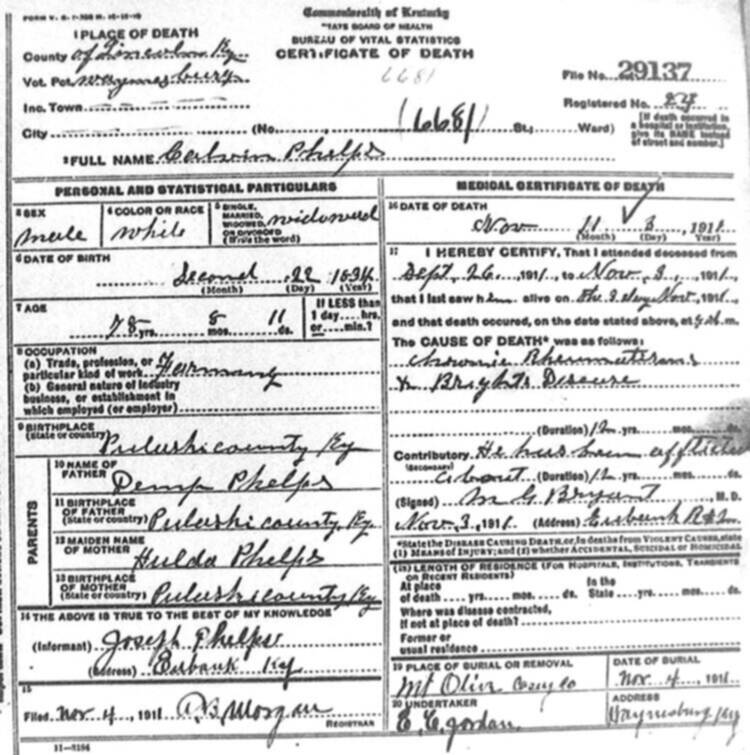 FORM V. S.
Commonwealth of Kentucky
STATE BOARD OF HEALTH
BUREAU OF VITAL STATISTICS
CERTIFICATE OF DEATH
6681
1 PLACE OF DEATH
County of Lincoln Ky
Vot. Pct. Waynesburg
Inc. Town
City (No. 6681 St.; Ward)
File No. 29137
Registered No. 24
[If death occurred in a hospital or institution, give its NAME instead of street and number.]
2 FULL NAME Calvin Phelps
PERSONAL AND STATISTICAL PARTICULARS
3 SEX male
4 COLOR OR RACE white
5 SINGLE, MARRIED, WIDOWED, OR DIVORCED (Write the word) widowed
6 DATE OF BIRTH
Second 22
(Month) (Day) (Year)
7 AGE
78 yrs. 8 mos. 11 ds.
If LESS than 1 day......hrs. or......min.?
8 OCCUPATION
(a) Trade, profession, or particular kind of work Farming
(b) General nature of industry
business, or establishment in
which employed (or employer)
9 BIRTHPLACE
(State or country) Pulaski county Ky
PARENTS
10 NAME OF FATHER Demp Phelps
11 BIRTHPLACE OF FATHER (State or country) Pulaski county Ky
12 MAIDEN NAME OF MOTHER Hulda Phelps
13 BIRTHPLACE OF MOTHER (State or country) Pulaski county Ky
14 THE ABOVE IS TRUE TO THE BEST OF MY KNOWLEDGE
(Informant) Joseph Phelps
(Address) Eubank Ky
15
Filed Nov 4, 1911 Morgan
REGISTRAR
11-3184
MEDICAL CERTIFICATE OF DEATH
16 DATE OF DEATH
Nov 11 3, 1911
(Month) (Day) (Year)
17 I HEREBY CERTIFY, That I attended deceased from
Sept. 26, 1911, to Nov. 3, 1911,
that I last saw him alive on the 3 day Nov, 1911,
and that death occured, on the date stated above, at m.
The CAUSE OF DEATH* was as follows:
Chronic Rheumatism
& Brights Disease
(Duration) 12 yrs. mos. ds.
Contributory. He has been afflicted
(SECONDARY) about (Duration) 12 yrs. mos. ds.
(Signed) M G Bryant M. D.
Nov. 3, 1911 (Address) Eubank
*State the DISEASE CAUSING DEATH, or, in deaths from VIOLENT CAUSES, state
(1) MEANS OF INJURY; and (2) whether ACCIDENTAL, SUICIDAL or HOMICIDAL
(18) LENGTH OF RESIDENCE (FOR HOSPITALS, INSTITUTIONS, TRANSIENTS
OR RECENT RESIDENTS)
At place of death yrs. mos. ds. In the State yrs. mos. ds.
Where was disease contracted,
if not at place of death?
Former or
usual residence
19 PLACE OF BURIAL OR REMOVAL
Mt Olive
DATE OF BURIAL
Nov 4, 1911
20 UNDERTAKER
E. C. Jordan
ADDRESS
Waynesburg Ky